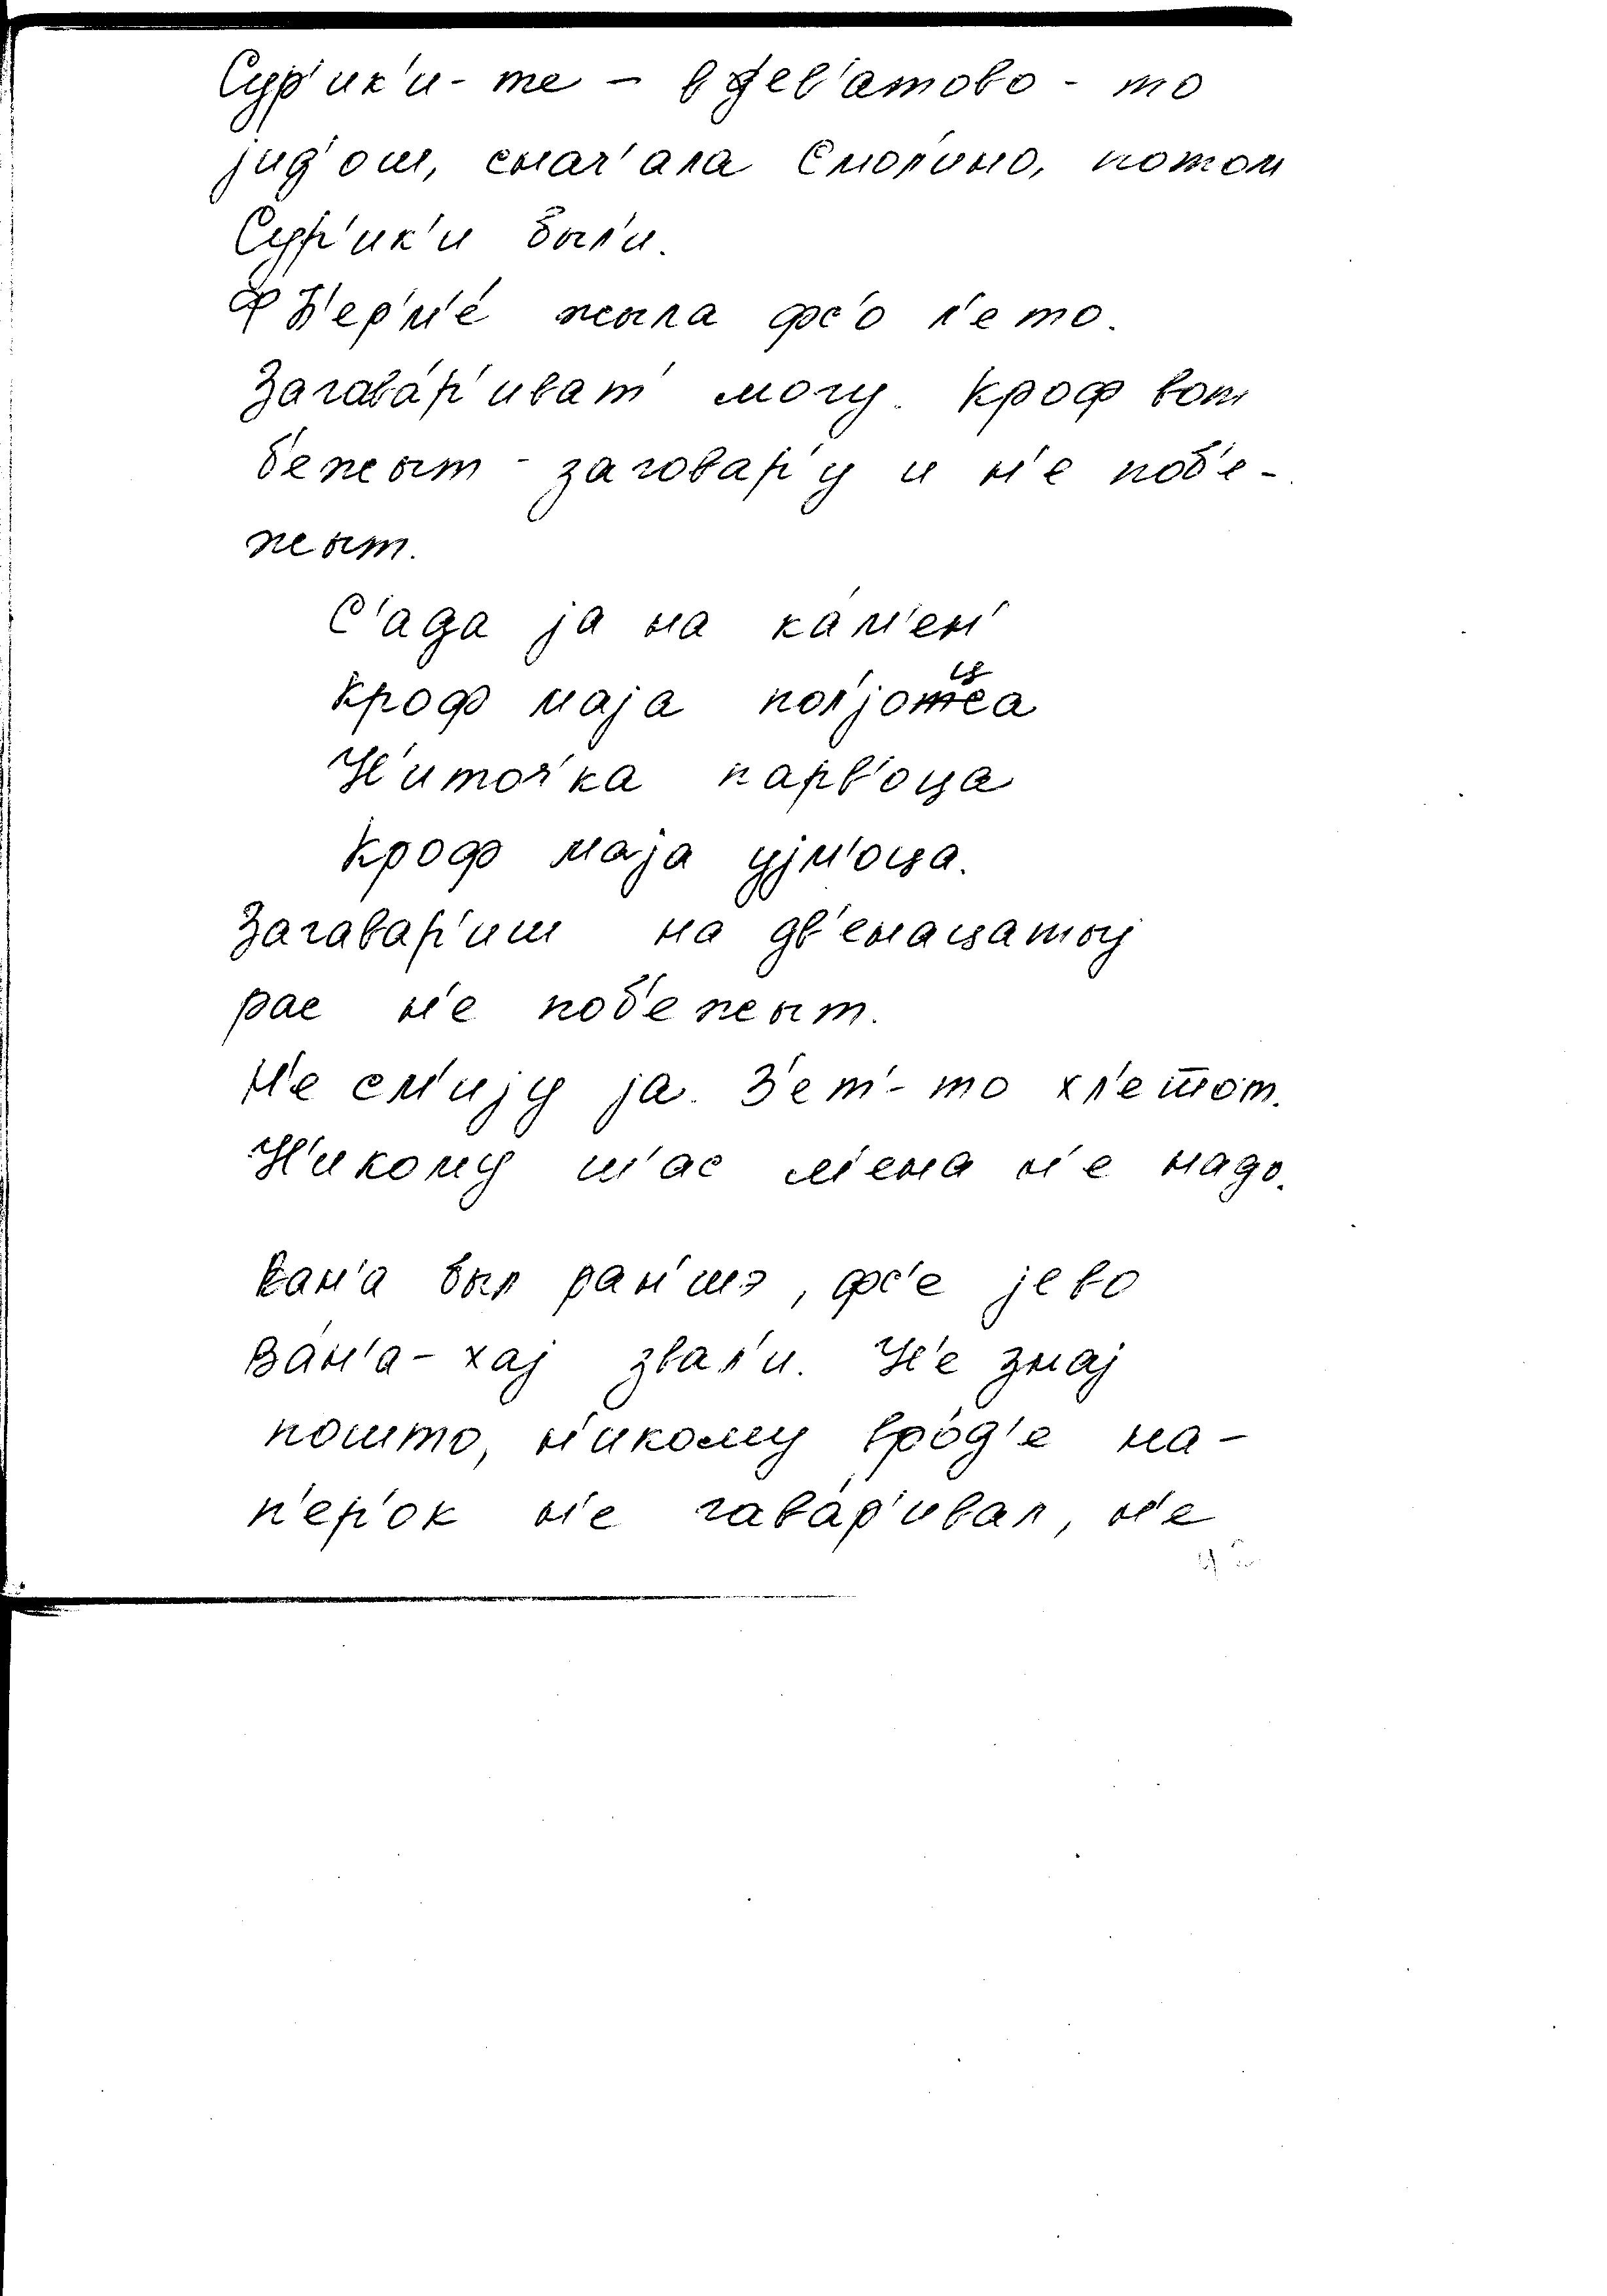 Сур'ик'и-те – в Дев'атово - то
jид'ош, снач'ала Смол'ино, потом
Сур'ик'и был'и.
Ф П'ерм'е́ жыла фс'о л'ето.
Загава́р'иват' могу. Кроф вот
б'ежыт - заговар'у и н'е поб'е-
жыт.
С'ада jа на ка́м'ен'
Кроф маjа пол'jоца
Н'иточ'ка парв'оца
Кроф маjа уjм'оца.
Загавар'иш на дв'енацатыj
рас н'е поб'ежыт.
Н'е см'иjу jа. З'ет'-то хл'ешот.
Н'икому ш'ас м'ена н'е надо.
Ван'а был ран'шэ, фс'е jево
Ва́н'а-хаj звал'и. Н'е знаj
пошто, н'икому вро́д'е на-
п'ер'ок н'е гава́р'ивал, н'е